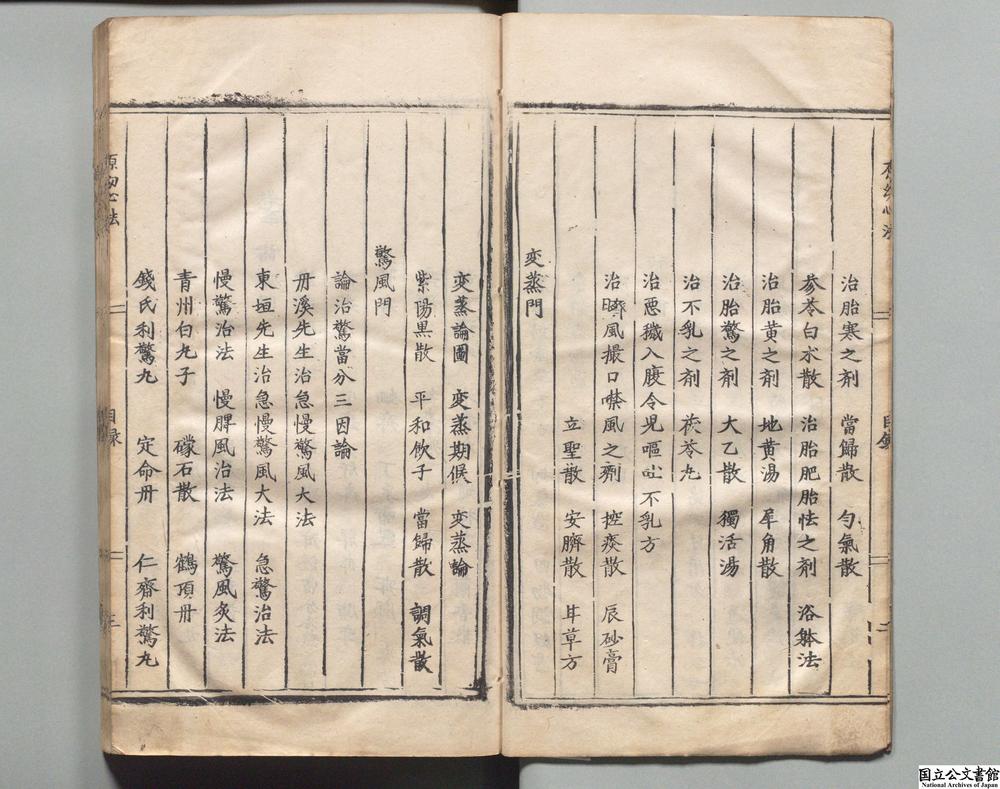 治胎寒之剤 當歸散 匀氣散
参苓白朮散 治胎肥胎怯之剤 浴躰法
治胎黄之剤 地黄湯 犀角散
治胎驚之剤 大乙散 獨活湯
治不乳之剤 茯苓丸
治惡穢入腹令児嘔吐不乳方
治臍風撮口噤風之剤 控痰散 辰砂膏
立聖散 安臍散 耳草方
变蒸門
变蒸論圖 变蒸期候 变蒸論
紫陽黒散 平和飲子 當歸散 調氣散
驚風門
論治驚當分三因論
丹溪先生治急慢驚風大法
東垣先生治急慢驚風大法 急驚治法
慢驚治法 慢脾風治法 驚風灸法
青州白丸子 礞石散 鶴頂丹
錢氏利驚丸 定命丹 仁齋利驚丸
原幼心法
目录
三
国立公文書館
National Archives of Japan